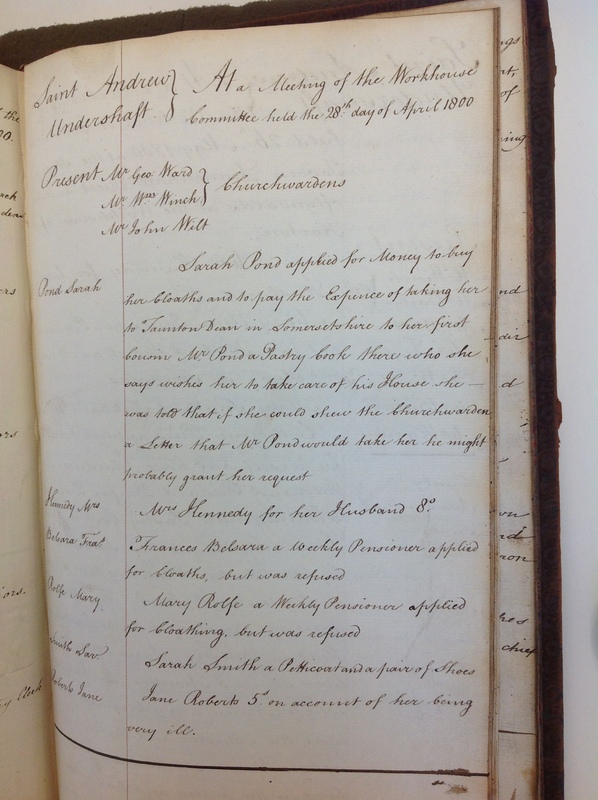 Saint Andrew Undershaft } At a Meeting of the Workhouse
Committee held the 28th day of April 1800
Present Mr Geo Ward
Mr Wm Winch } Churchwardens
Mr John Wilt
Pond Sarah
Sarah Pond applied for Money to buy
her Cloaths and to pay the Expence of taking her
to Taunton Dean in Somersetshire to her first
Cousin Mr Pond a Pastry Cook there who she
says wishes her to take care of his House she —
was told that if she could shew the Churchwarden
a Letter that Mr Pond would take her he might
probably grant her request
Kennedy Mrs
Mrs Kennedy for her Husband 8s
Belsara Fras
Frances Belsara a Weekly Pensioner applied
for Cloaths, but was refused
Rolfe Mary
Mary Rolfe a Weekly Pensioner applied
for Cloathing, but was refused
Smith Sar
Sarah Smith a Petticoat and a pair of Shoes
Roberts Jane
Jane Roberts 5s on account of her being
very ill.